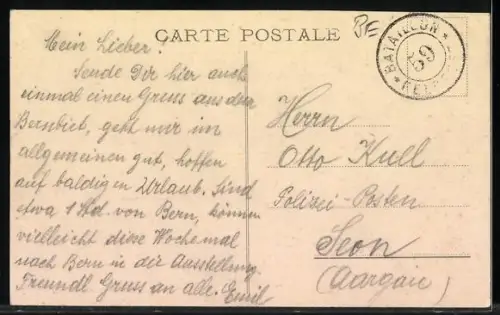 CARTE POSTALE
Mein Lieber!
Sende Dir hier auch
einmal einen Gruss aus dem
Bernbiet, geht mir im
allgemeinen gut, hoffen
auf baldigen Urlaub. Sind
etwa 1 Std. von Bern, können
vielleicht diese Woche mal
nach Bern in die Ausstellung.
Freundl. Gruss an alle. Emil
BATAILLON
59
Herrn
Otto Kull
Polizei-Posten
Seon
(Aargau)